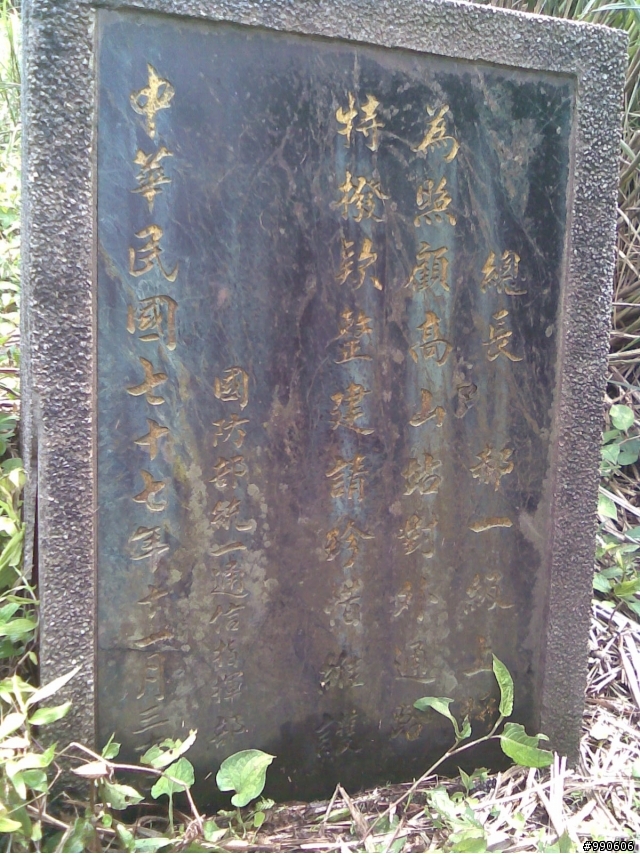 總長 郝一級上將
為照顧高山站對外通路
特撥款整建請珍惜維護
國防部統一通信指揮部
中華民國七十七年十一月三
#990606